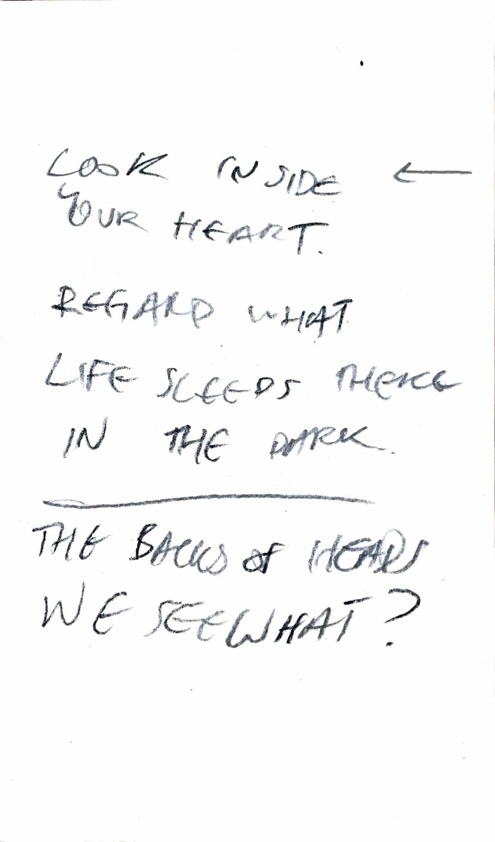 LOOK INSIDE ←
YOUR HEART.
REGARD WHAT
LIFE SLEEPS THERE
IN THE DARK.
THE BACKS OF HEADS
WE SEE WHAT?